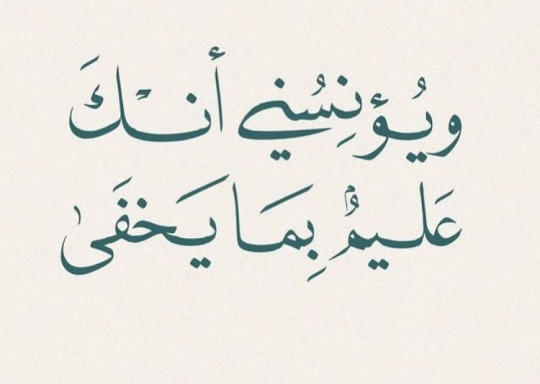 ويُؤنِسُني أنـّكَ
عَليمٌ بِمَا يَخفَىٰ